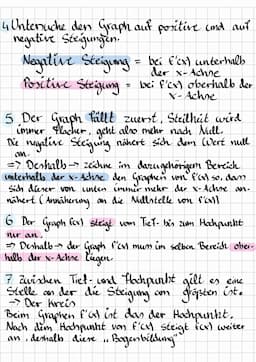 4 Untersuche den Graph auf positive und auf
negative Steigungen.
Negative Steigung = bei f'(x) unterhalb
der x-Achse
Positive Steigung = bei f'(x) oberhalb der
x-Achse
5 Der Graph fällt zuerst, Steilheit wird
immer flacher, geht also mehr nach Null.
Die negative Steigung nähert sich dem Wert null
an.
=> Deshalb → zeichne im dazugehörigem Bereich
unterhalb der x-Achse den Graphen von f'(x) so, dass
sich dieser von unten immer mehr der x-Achse an-
nähert (Annäherung an die Nullstelle von f'(x))
6 Der Graph f(x) steigt vom Tief- bis zum Hochpunkt
nur an.
=> Deshalb → der Graph f'(x) muss im selben Bereich ober-
halb der x-Achse liegen.
7 Zwischen Tief- und Hochpunkt gilt es eine
Stelle an der die Steigung am größten ist.
=> Der Kreis
Beim Graphen f'(x) ist das der Hochpunkt.
Nach dem Hochpunkt von f'(x) steigt f(x) weiter
an, deshalb diese „Bogenbildung"